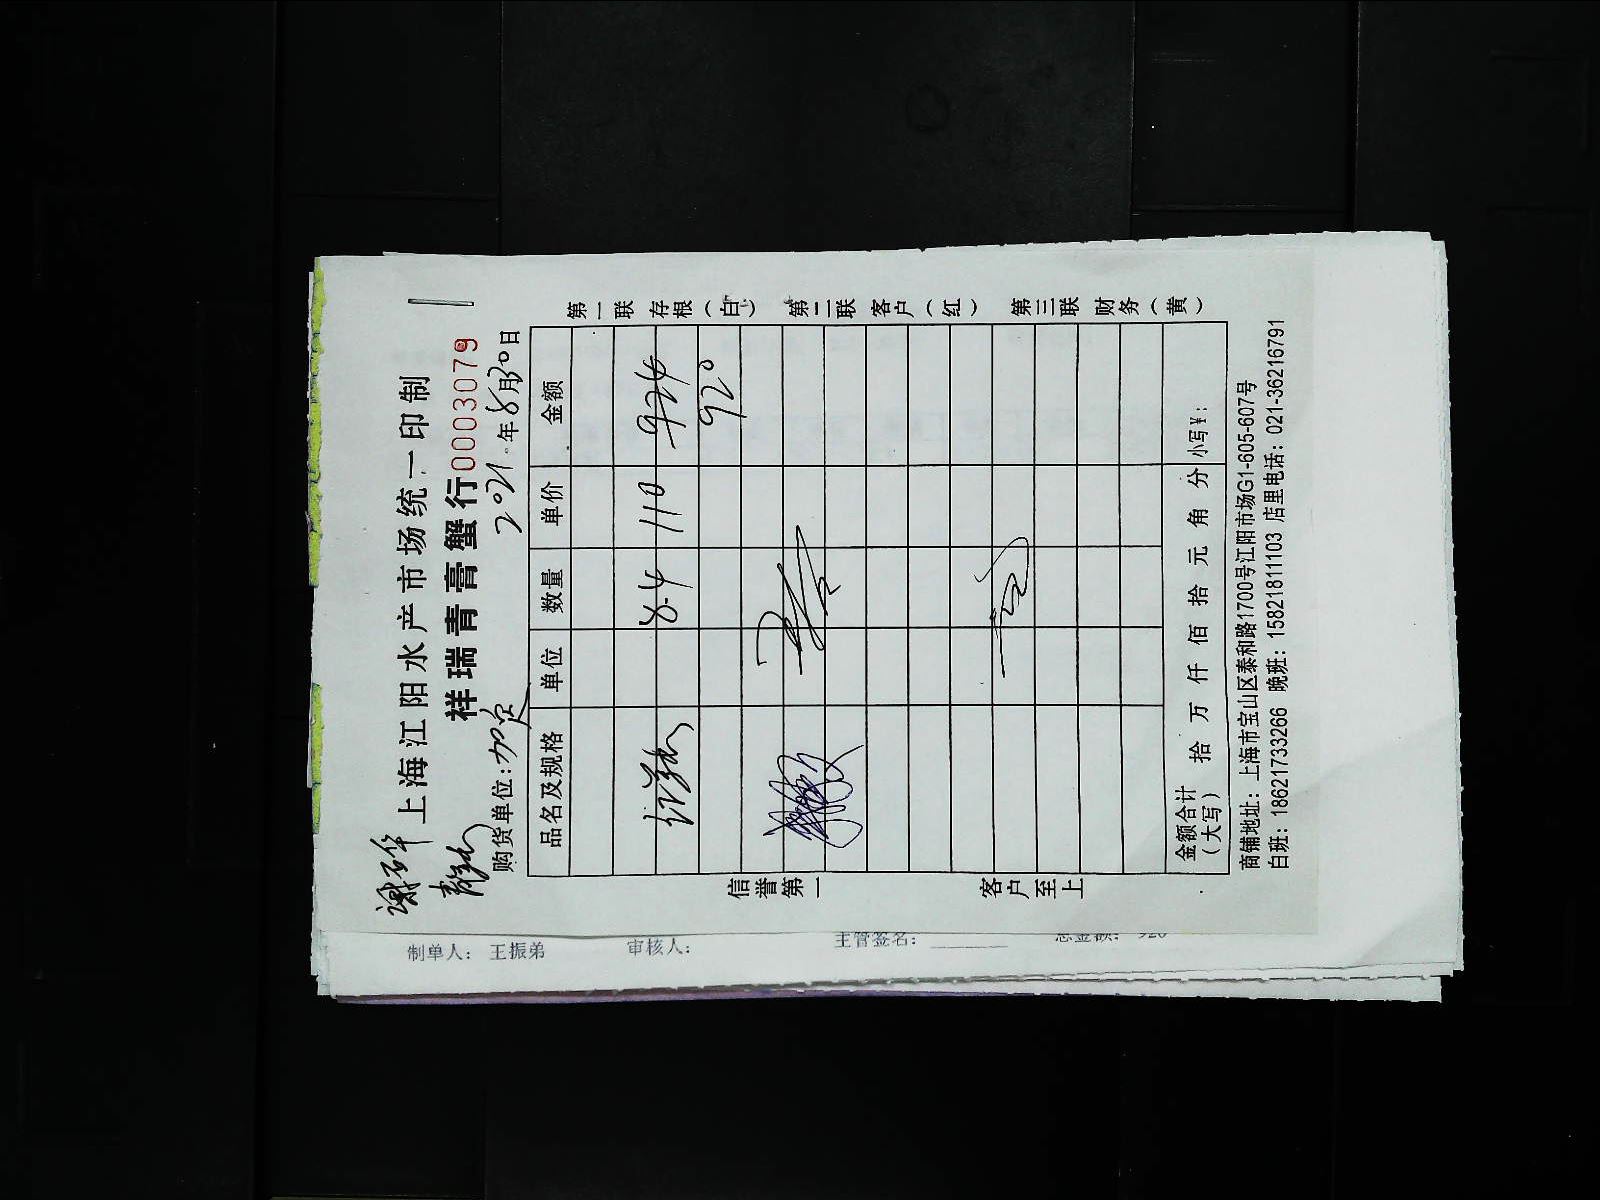 上海江阳水产市场统一印制
祥瑞青膏蟹行0003079
购货单位:加定 2021.年8月30日
品名及规格 单位 数量 单价 金额
红膏 8.4 110 924
920
金额合计
(大写) 拾 万 仟 佰 拾 元 角 分 小写¥:
商铺地址:上海市宝山区泰和路1700号江阳市场G1-605-607号
白班:18621733266 晚班:15821811103 店里电话:021-36216791
第一联 存根(白) 第二联 客户(红) 第三联 财务(黄)
信誉第一 客户至上
制单人: 王振弟 审核人: 主管签名: 总金额: 920